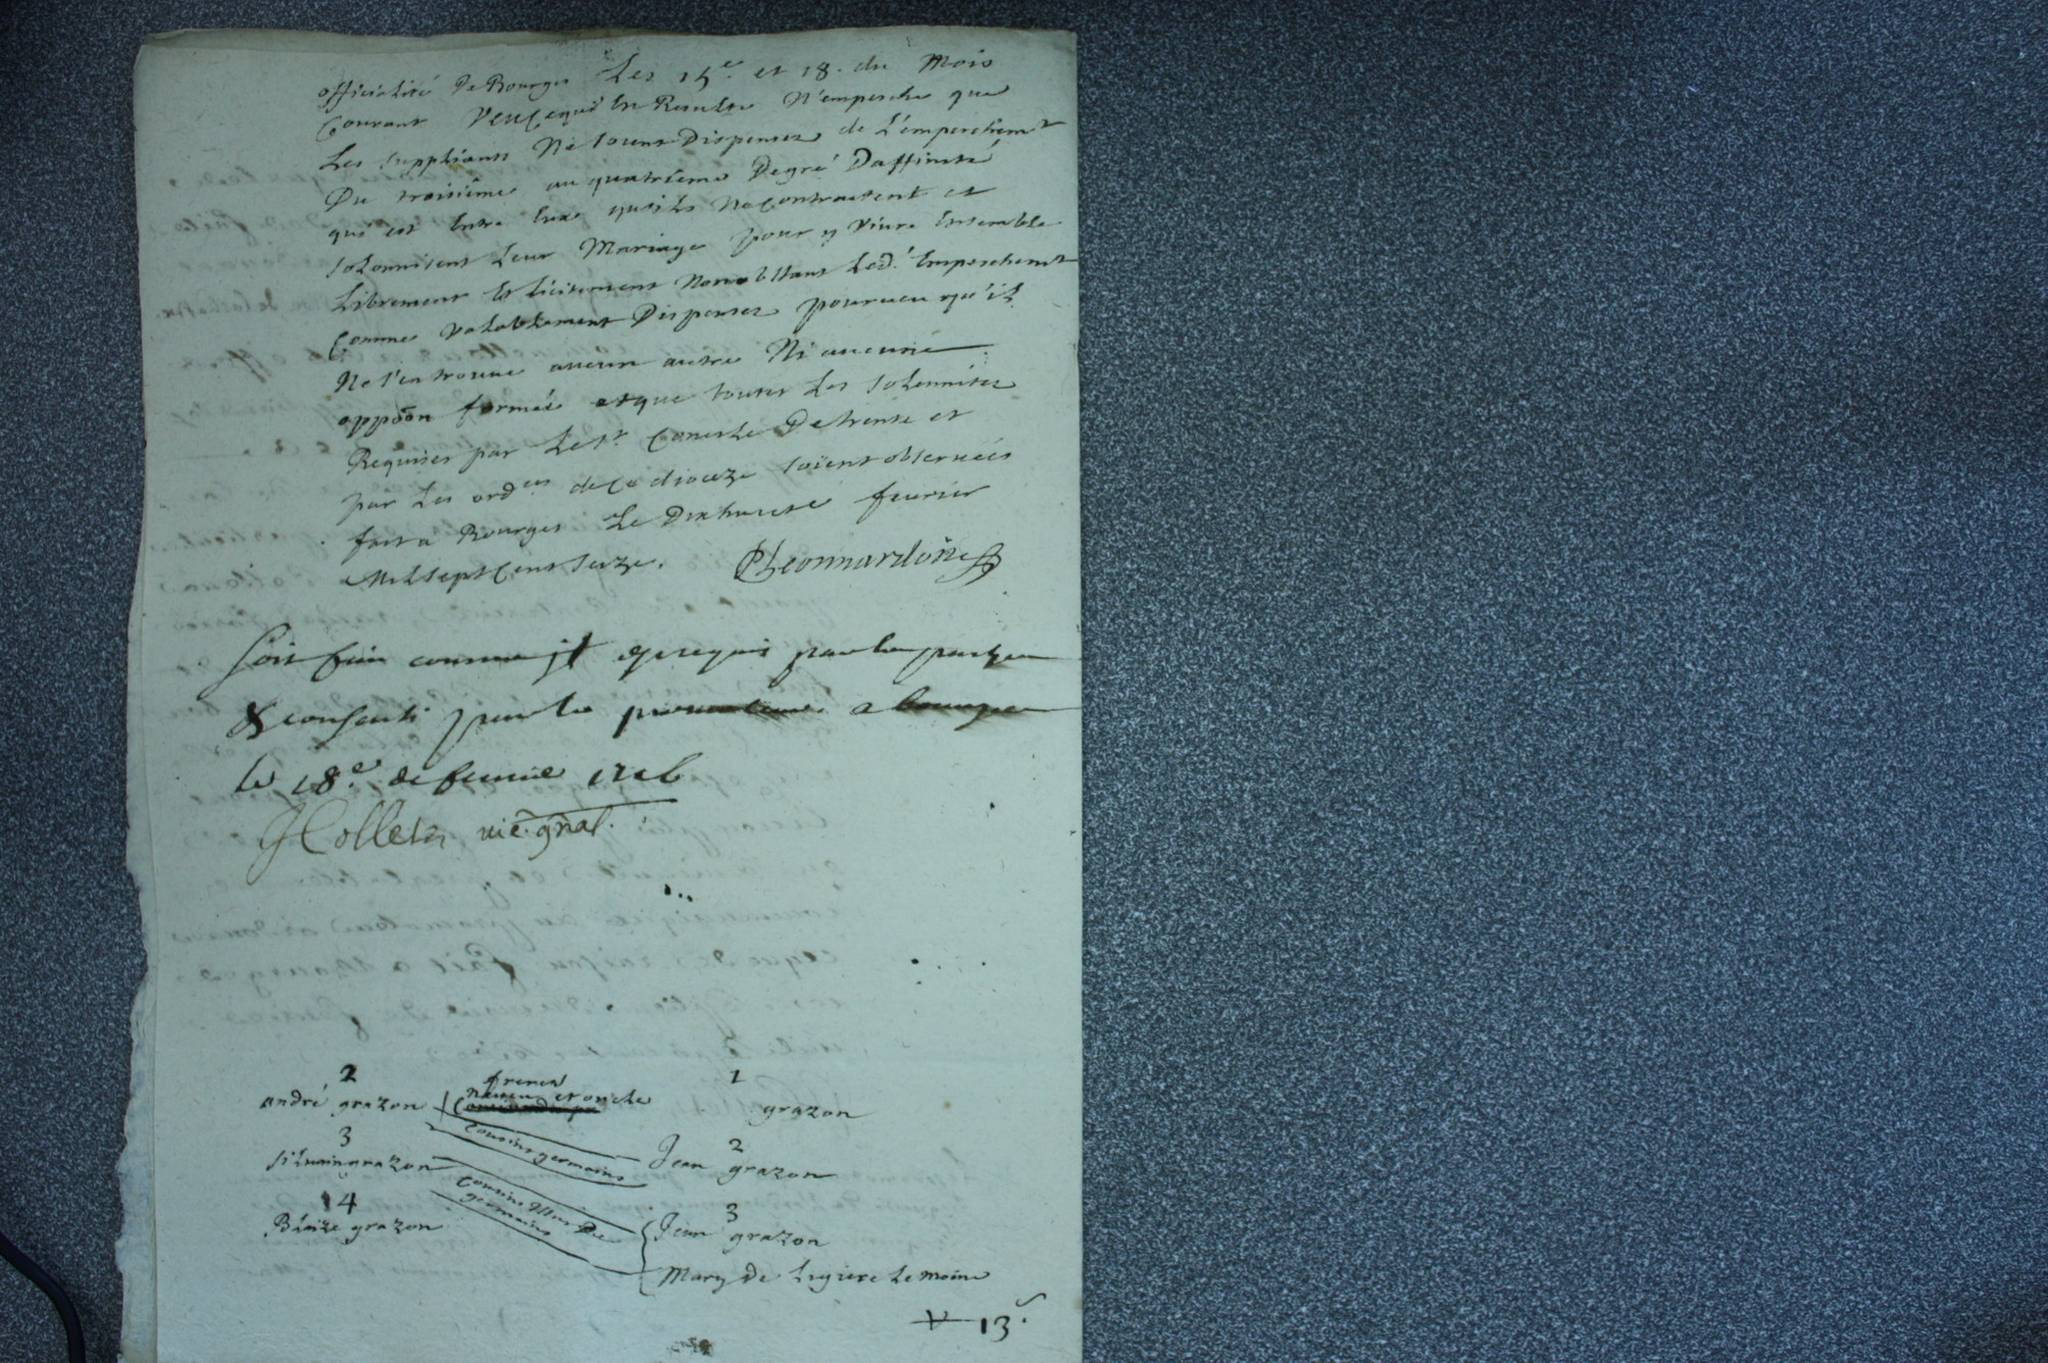 officialité De Bourges Les 15e. et 18. du Mois
Courant Veu Cequi En Resulte N'empesche que
Les suppliants Ne soient Dispensez de L'empeschemt
Du troisième au quatrième Degré Daffinité
qui est Entre Eux quils Ne contractent et
solonnisent Leur Mariage pour y vivre Ensemble
Librement Et licitement Nonobstant Led. Empeschemt
Comme valablement Dispensez pourveu qu'il
Ne s'en trouve aucun autre Ni aucune
oppoõn formée et que toutes Les solennitez
Requises par Le st. Concile De trente et
par Les ordces de Ce dioceze soient observéés
fait a Bourges Le Dixhuitié fevrier
Mil sept Cent seize. Leonnardon
Soit fait comme il est requis par les parties
& consenti par le promoteur a bourges
le 18e. de fevrier 1716
Colleta vic. gñal.
2 freres 1
andré grazon neveu et oncle grazon
cousins germains
3 2
silvain grazon Jean grazon
cousins issus De germains
4 3
Blaize grazon Jean grazon
Mary de Ligiere Le moine
13.